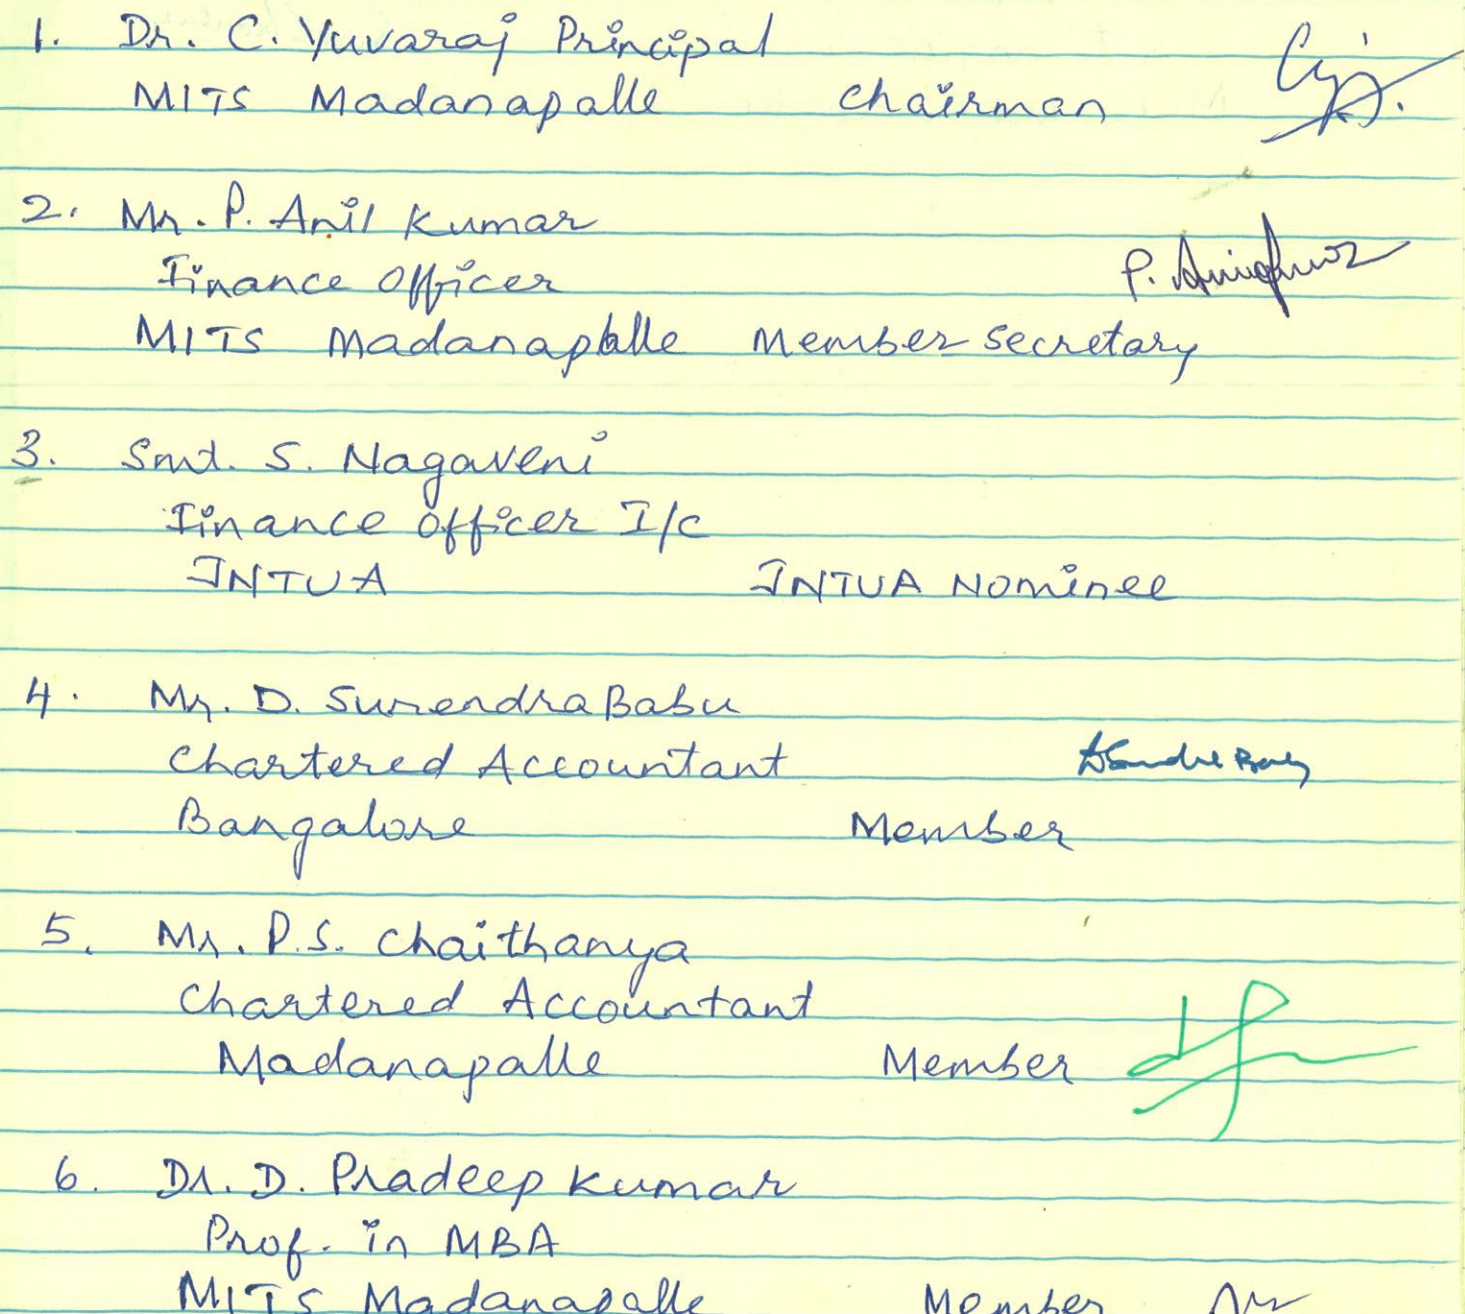 1. Dr. C. Yuvaraj Principal
MITS Madanapalle Chairman
2. Mr. P. Anil Kumar
Finance Officer
MITS Madanapalle Member Secretary
3. Smt. S. Nagaveni
Finance Officer I/C
JNTUA JNTUA Nominee
4. Mr. D. Surendra Babu
Chartered Accountant
Bangalore Member
5. Mr. P.S. Chaithanya
Chartered Accountant
Madanapalle Member
6. Dr. D. Pradeep Kumar
Prof. in MBA
MITS Madanapalle Member